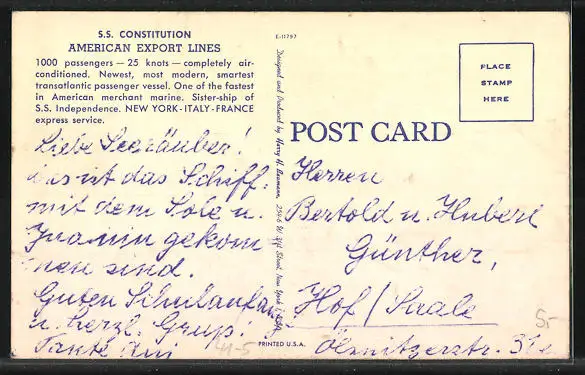 S.S. CONSTITUTION
AMERICAN EXPORT LINES
1000 passengers — 25 knots — completely air-
conditioned. Newest, most modern, smartest
transatlantic passenger vessel. One of the fastest
in American merchant marine. Sister-ship of
S.S. Independence. NEW YORK-ITALY-FRANCE
express service.
Liebe Seeräuber!
das ist das Schiff,
mit dem Sole u.
gekom
men sind.
Guten Schulanfang
u. herzl. Gruß!
Tante Ani
44-5
E-11797
Designed and Produced by Harry H. Baumann, New York
POST CARD
PLACE
STAMP
HERE
Herren
Bertold u. Hubert
Günther,
Hof / Saale
Ölsnitzerstr.
5,-
PRINTED U.S.A.